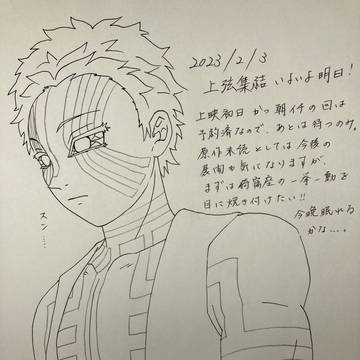 2023/2/3
上弦集結 いよいよ明日!
上映初日 かつ 朝イチの回は
予約済なので、あとは待つのみ。
原作未読としては今後の
展開も気になりますが、
まずは猗窩座の一挙一動を
目に焼き付けたい!!
今晩眠れる
かな…。
スン……